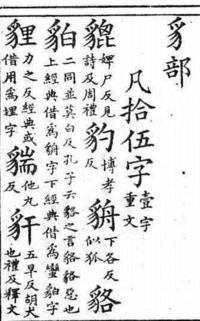 豸部
凡拾伍字壹字重文
貔婢尸反見詩及周禮豹博孝反貈下各反似狐貉
貃二同並莫白反孔子云貉之言貉貉惡也上經典借爲貈字下經典借爲蠻貃字
貍力之反經典或借用爲埋字貒他丸反豻五旱反胡犬也禮及釋文